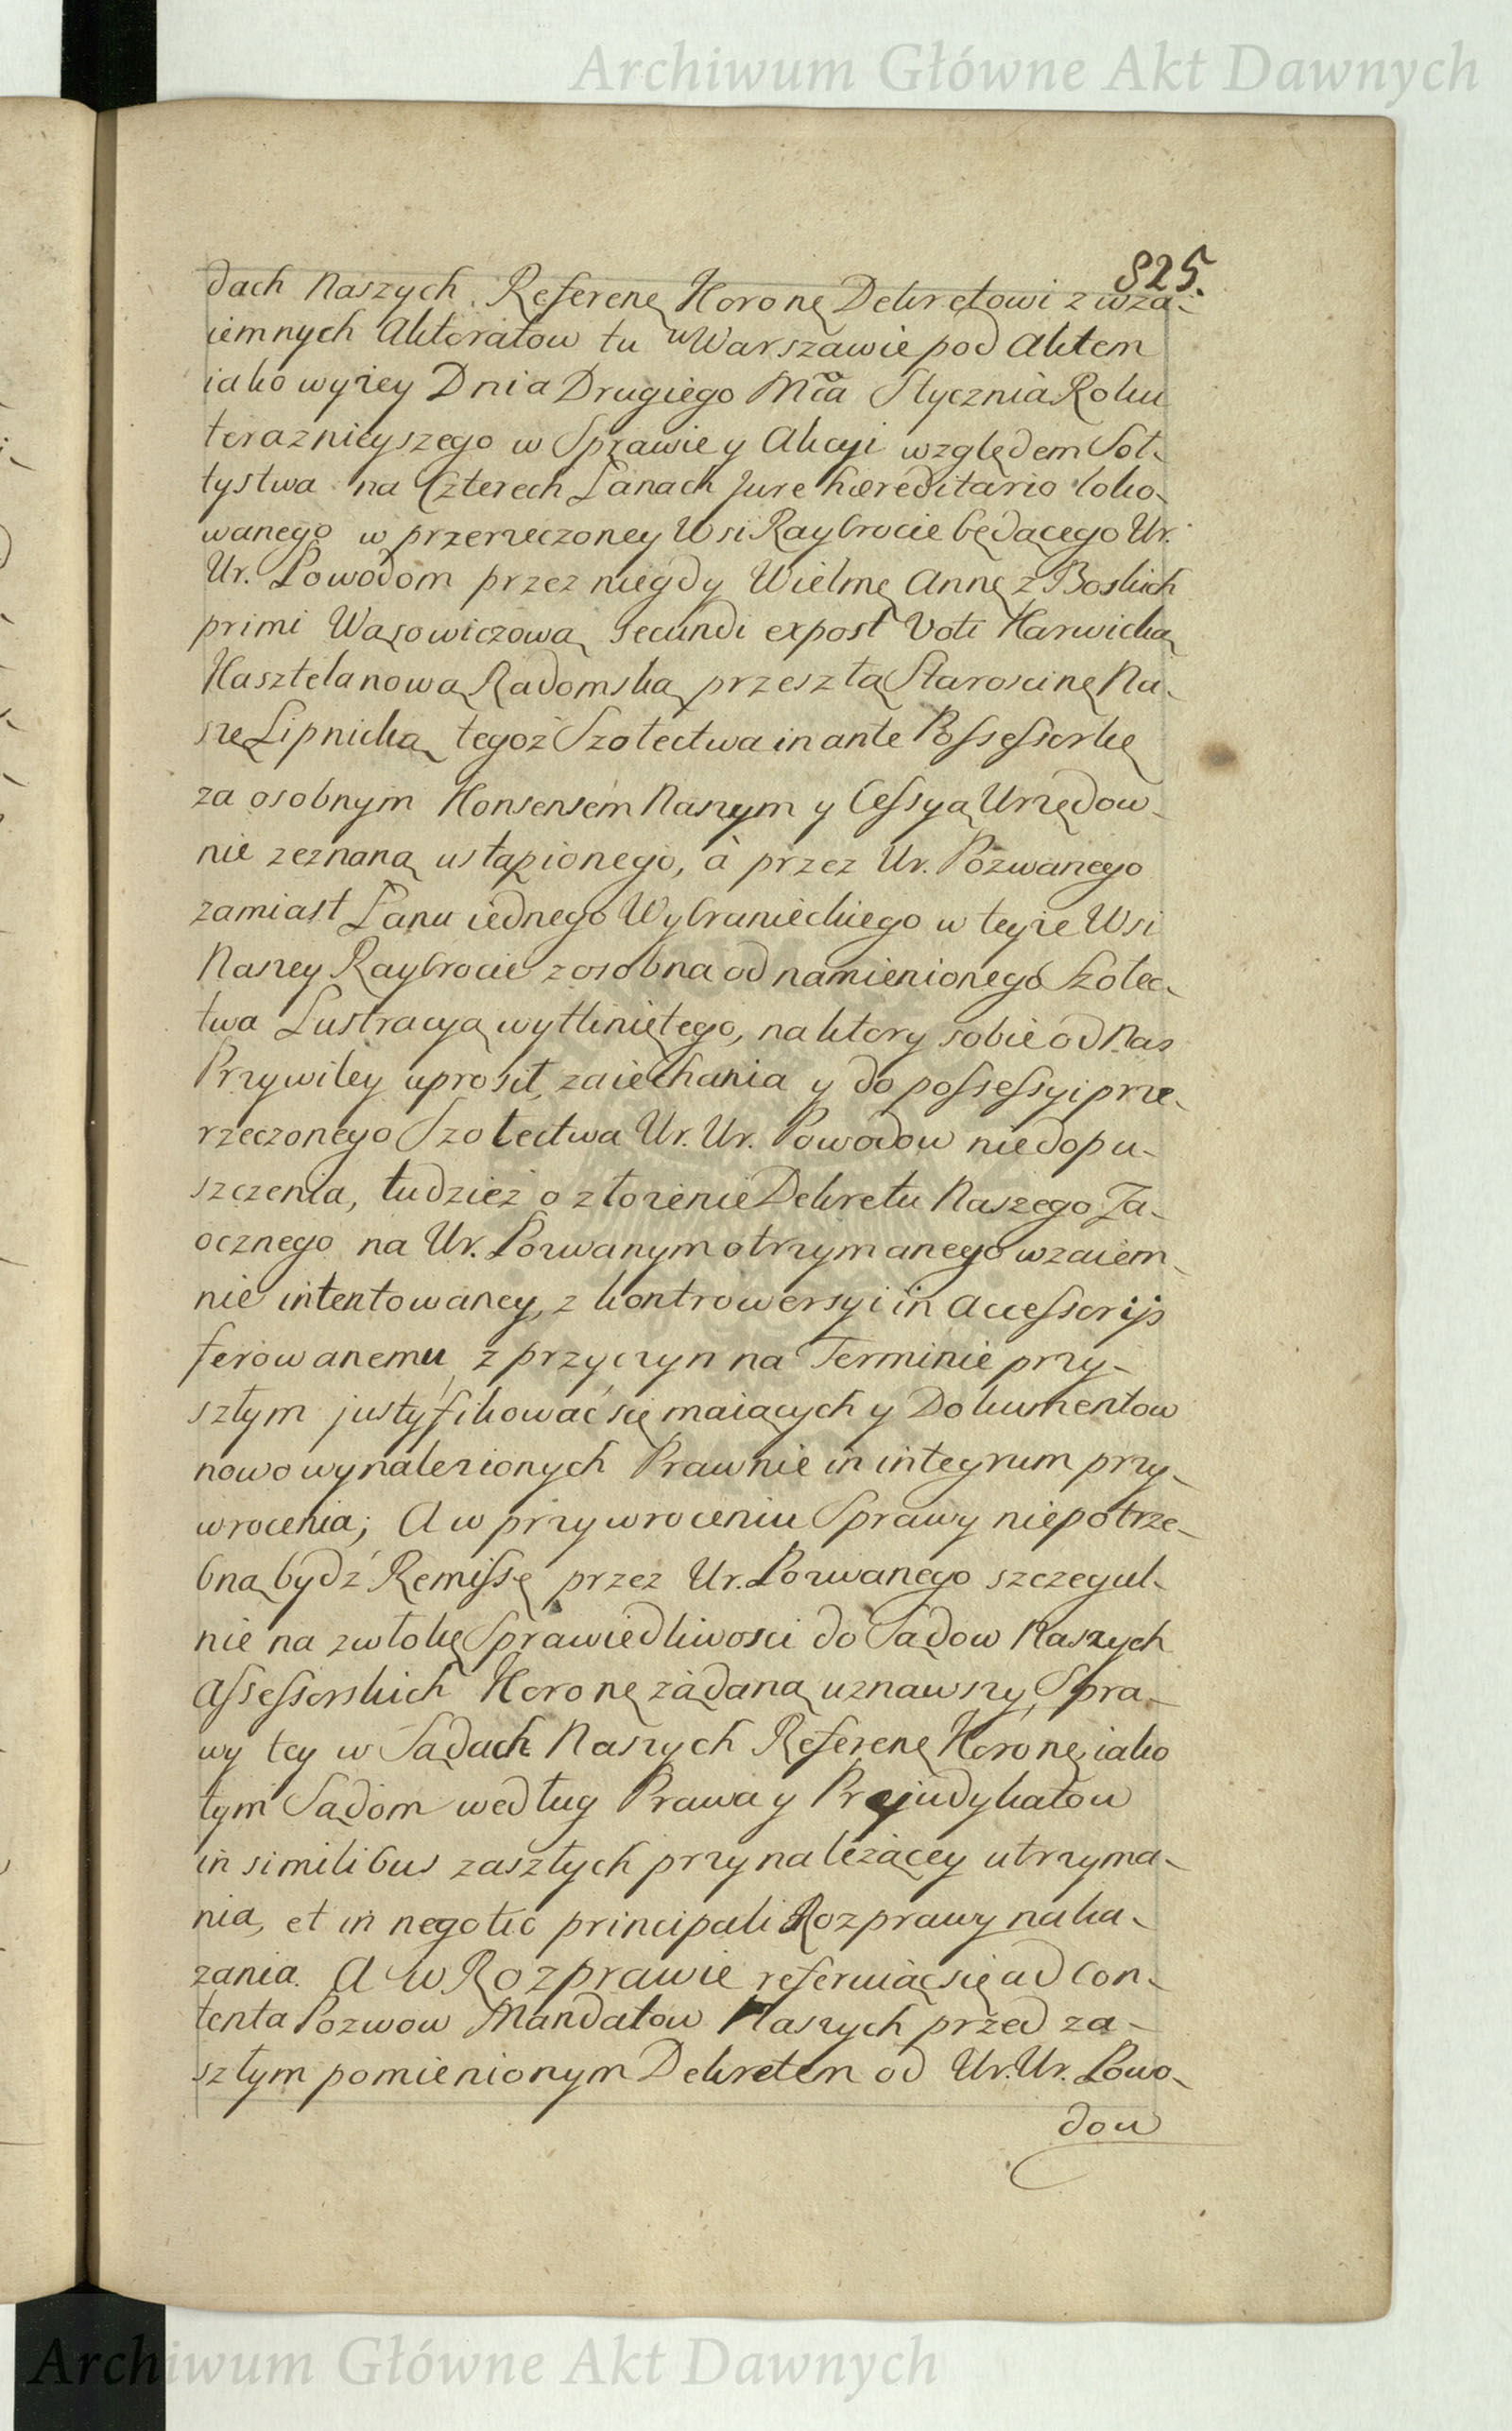 Archiwum Główne Akt Dawnych
825.
dach Naszych Referenę Koronę Dekretowi z wza-
iemnych Aktoratow tu w Warszawie pod Aktem
iako wyżey Dnia Drugiego Mca Stycznia Roku
teraznieyszego w Sprawie y Akcyi względem Soł-
tystwa na Czterech Łanach Jure hæreditario loko-
wanego w przerzeczoney Wsi Raybrocie będącego Ur.
Ur. Powodom przez niegdy Wielmę Annę z Boskich
primi Wąsowiczową secundi expost Voti Karwicką
Kasztelanową Radomską przeszłą Starościnę Na-
szę Lipnicką tegoż Szołectwa in ante Possessorkę
za osobnym Konsensem Naszym y Cessyą Urzędow-
nie zeznaną ustąpionego, à przez Ur. Pozwanego
zamiast Łanu iednego Wybranieckiego w teyże Wsi
Naszey Raybrocie z osobna od namienionego Szołec-
twa Lustracyą wytkniętego, na ktory sobie od Nas
Przywiley uprosił, zaiechania y do possessyi prze-
rzeczonego Szołectwa Ur. Ur. Powodow niedopu-
szczenia, tudzież o złożenie Dekretu Naszego Za-
ocznego na Ur. Pozwanym otrzymanego wzaiem-
nie intentowaney, z kontrowersyi in Accessorijs
ferowanemu, z przyczyn na Terminie przy-
szłym justyfikować się maiących y Dokumentow
nowo wynalezionych Prawnie in integrum przy-
wrocenia; A w przywroceniu Sprawy niepotrze-
bną bydź Remissę przez Ur. Pozwanego szczegul-
nie na zwłokę Sprawiedliwości do Sądow Naszych
Assessorskich Koronę żądaną uznawszy, Spra-
wy tey w Sądach Naszych Referenę Koronę, iako
tym Sądom według Prawa y Prejudykatow
in similibus zaszłych przynależącey utrzyma-
nia, et in negotio principali Rozprawy naka-
zania. A w Rozprawie referuiąc się ad Con-
tenta Pozwow Mandatow Naszych przed za-
szłym pomienionym Dekretem od Ur. Ur. Powo-
dow
Archiwum Główne Akt Dawnych